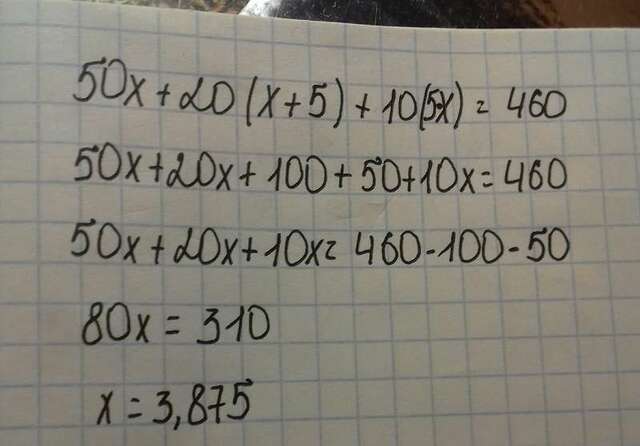 50x + 20 (x + 5) + 10(5x) = 460
50x + 20x + 100 + 50 + 10x = 460
50x + 20x + 10x = 460 - 100 - 50
80x = 310
x = 3,875